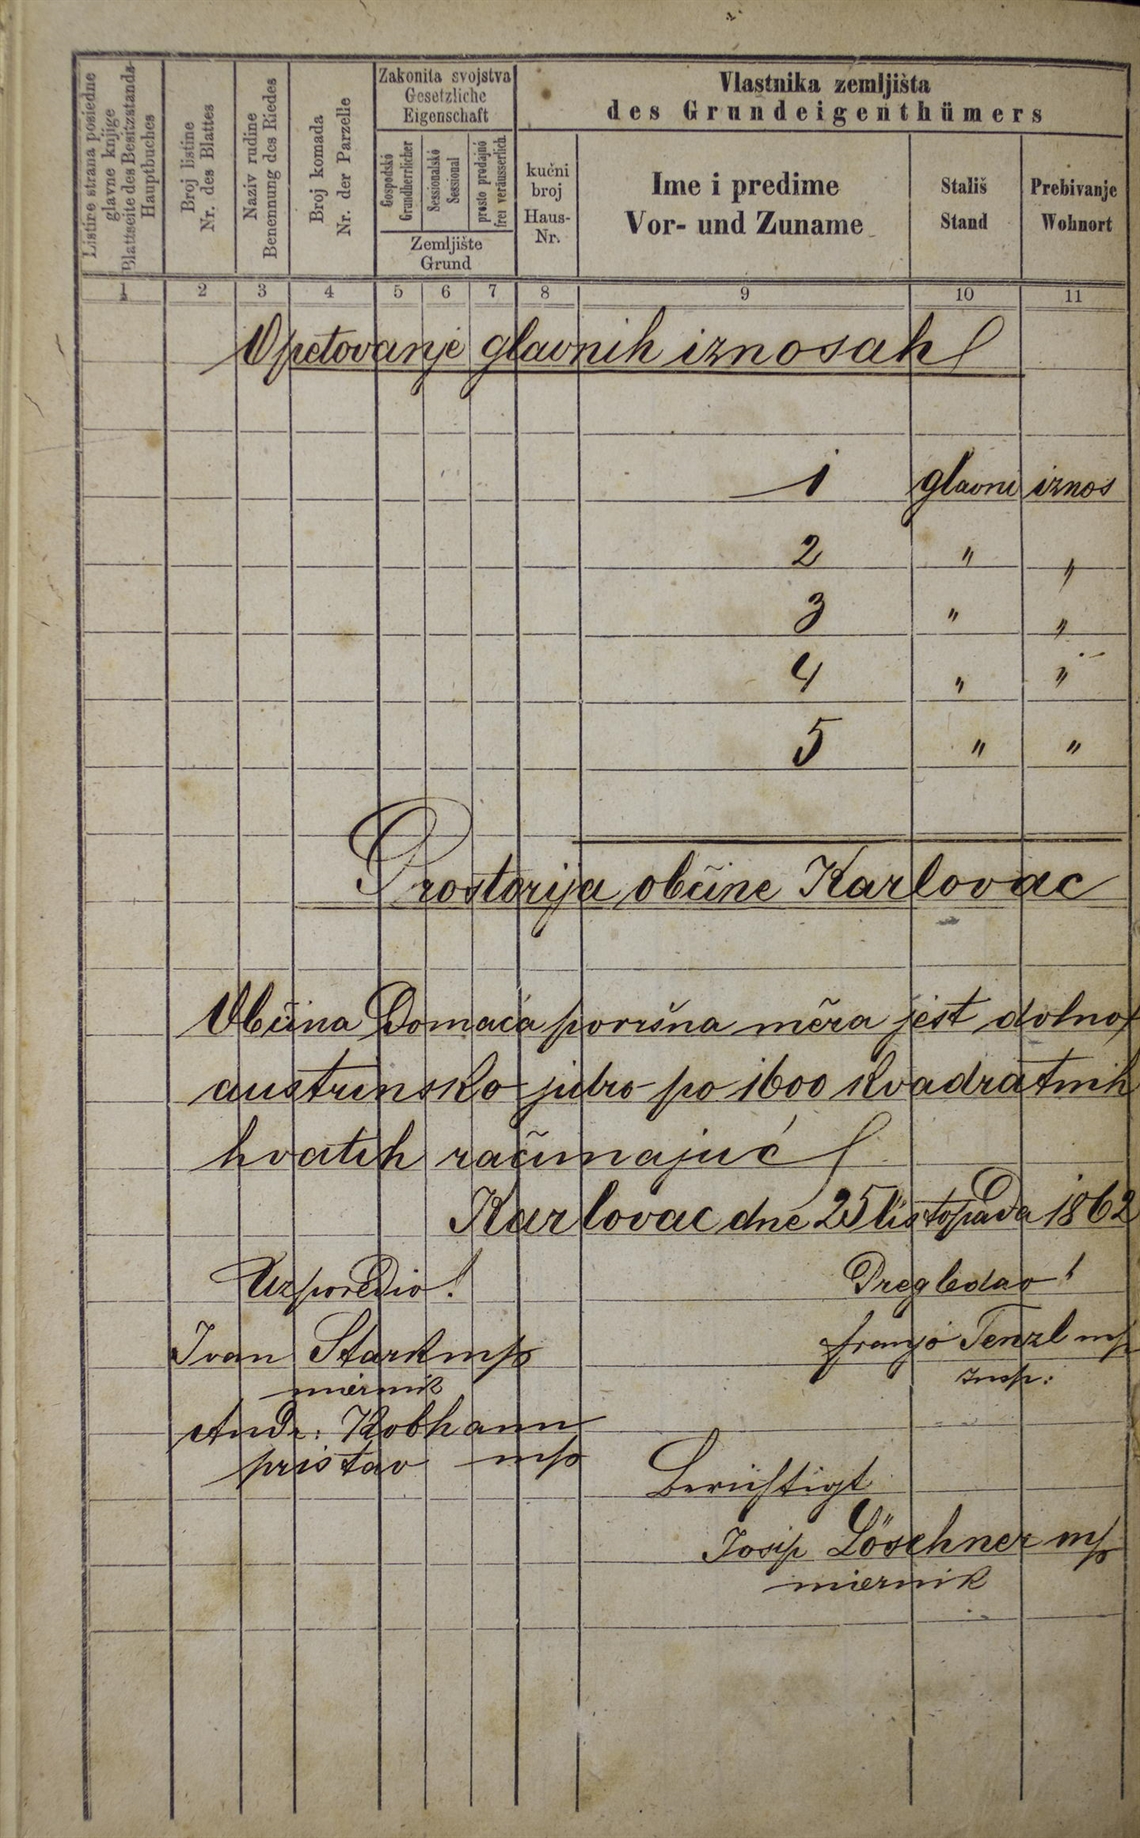 Listine strana posiedne
glavne knjige
Blattseite des Besitzstands-
Hauptbuches
Broj listine
Nr. des Blattes
Naziv rudine
Benennung des Riedes
Broj komada
Nr. der Parzelle
Zakonita svojstva
Gesetzliche
Eigenschaft
Gospodsko
Grundherrlicher
Sessionalsko
Sessional
prosto prodajno
frei veräusserlich.
Zemljište
Grund
Vlastnika zemljišta
des Grundeigenthümers
kućni
broj
Haus-
Nr.
Ime i predime
Vor- und Zuname
Stališ
Stand
Prebivanje
Wohnort
1 2 3 4 5 6 7 8 9 10 11
Opetovanje glavnih iznosah
1 glavni iznos
2 " "
3 " "
4 " "
5 " "
Prostorija občine Karlovac
Občina Domaća površna měra jest dolno
austrinsko jutro po 1600 kvadratnih
hvatih računajuć
Karlovac dne 25 listopada 1862
Uzporedio!
Pregledao!
Ivan Stark mp
franjo Tenzl mp
miernik
Insp:
Andr: Kobhann
pristav mp
Berichtigt
Josip Löschner mp
miernik